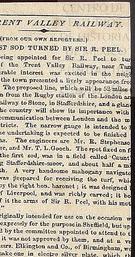 RENT VALLEY RAILWAY.
(FROM OUR OWN REPORTERS.)
ST SOD TURNED BY SIR R. PEEL.
ning appointed for Sir R. Peel to tur
of the Trent Valley Railway, near Tam
erable interest was excited in the neigh
the town presented a lively appearance fro
The proposed line, which will be 52 miles
n from the Rugby station of the London an
ailway to Stone, in Staffordshire, and a glan
the country will show the importance wh
communication between London and the m
tricts. The narrow gauge is intended to
e undertaking is expected to be finished
The engineers are Mr. R. Stephenson
der, and Mr. T. L. Gooch. The spot fixed on f
the first sod, was in a field called
Staffordshire-moor, and about half a m
A very handsome mahogany
was prepared for receiving the turf, whi
the right hon. baronet; it was designed
of Liverpool, and was richly carved; it ha
the arms of Sir R. Peel, with his mot
iginally intended for use on the occasion
expressly for the purpose in Sheffield, but
by the committee appointed to attend to t
it was not approved by them, and at a
srs. Elkington and Co., of Birmingham, we
make one in electro silver plate, which